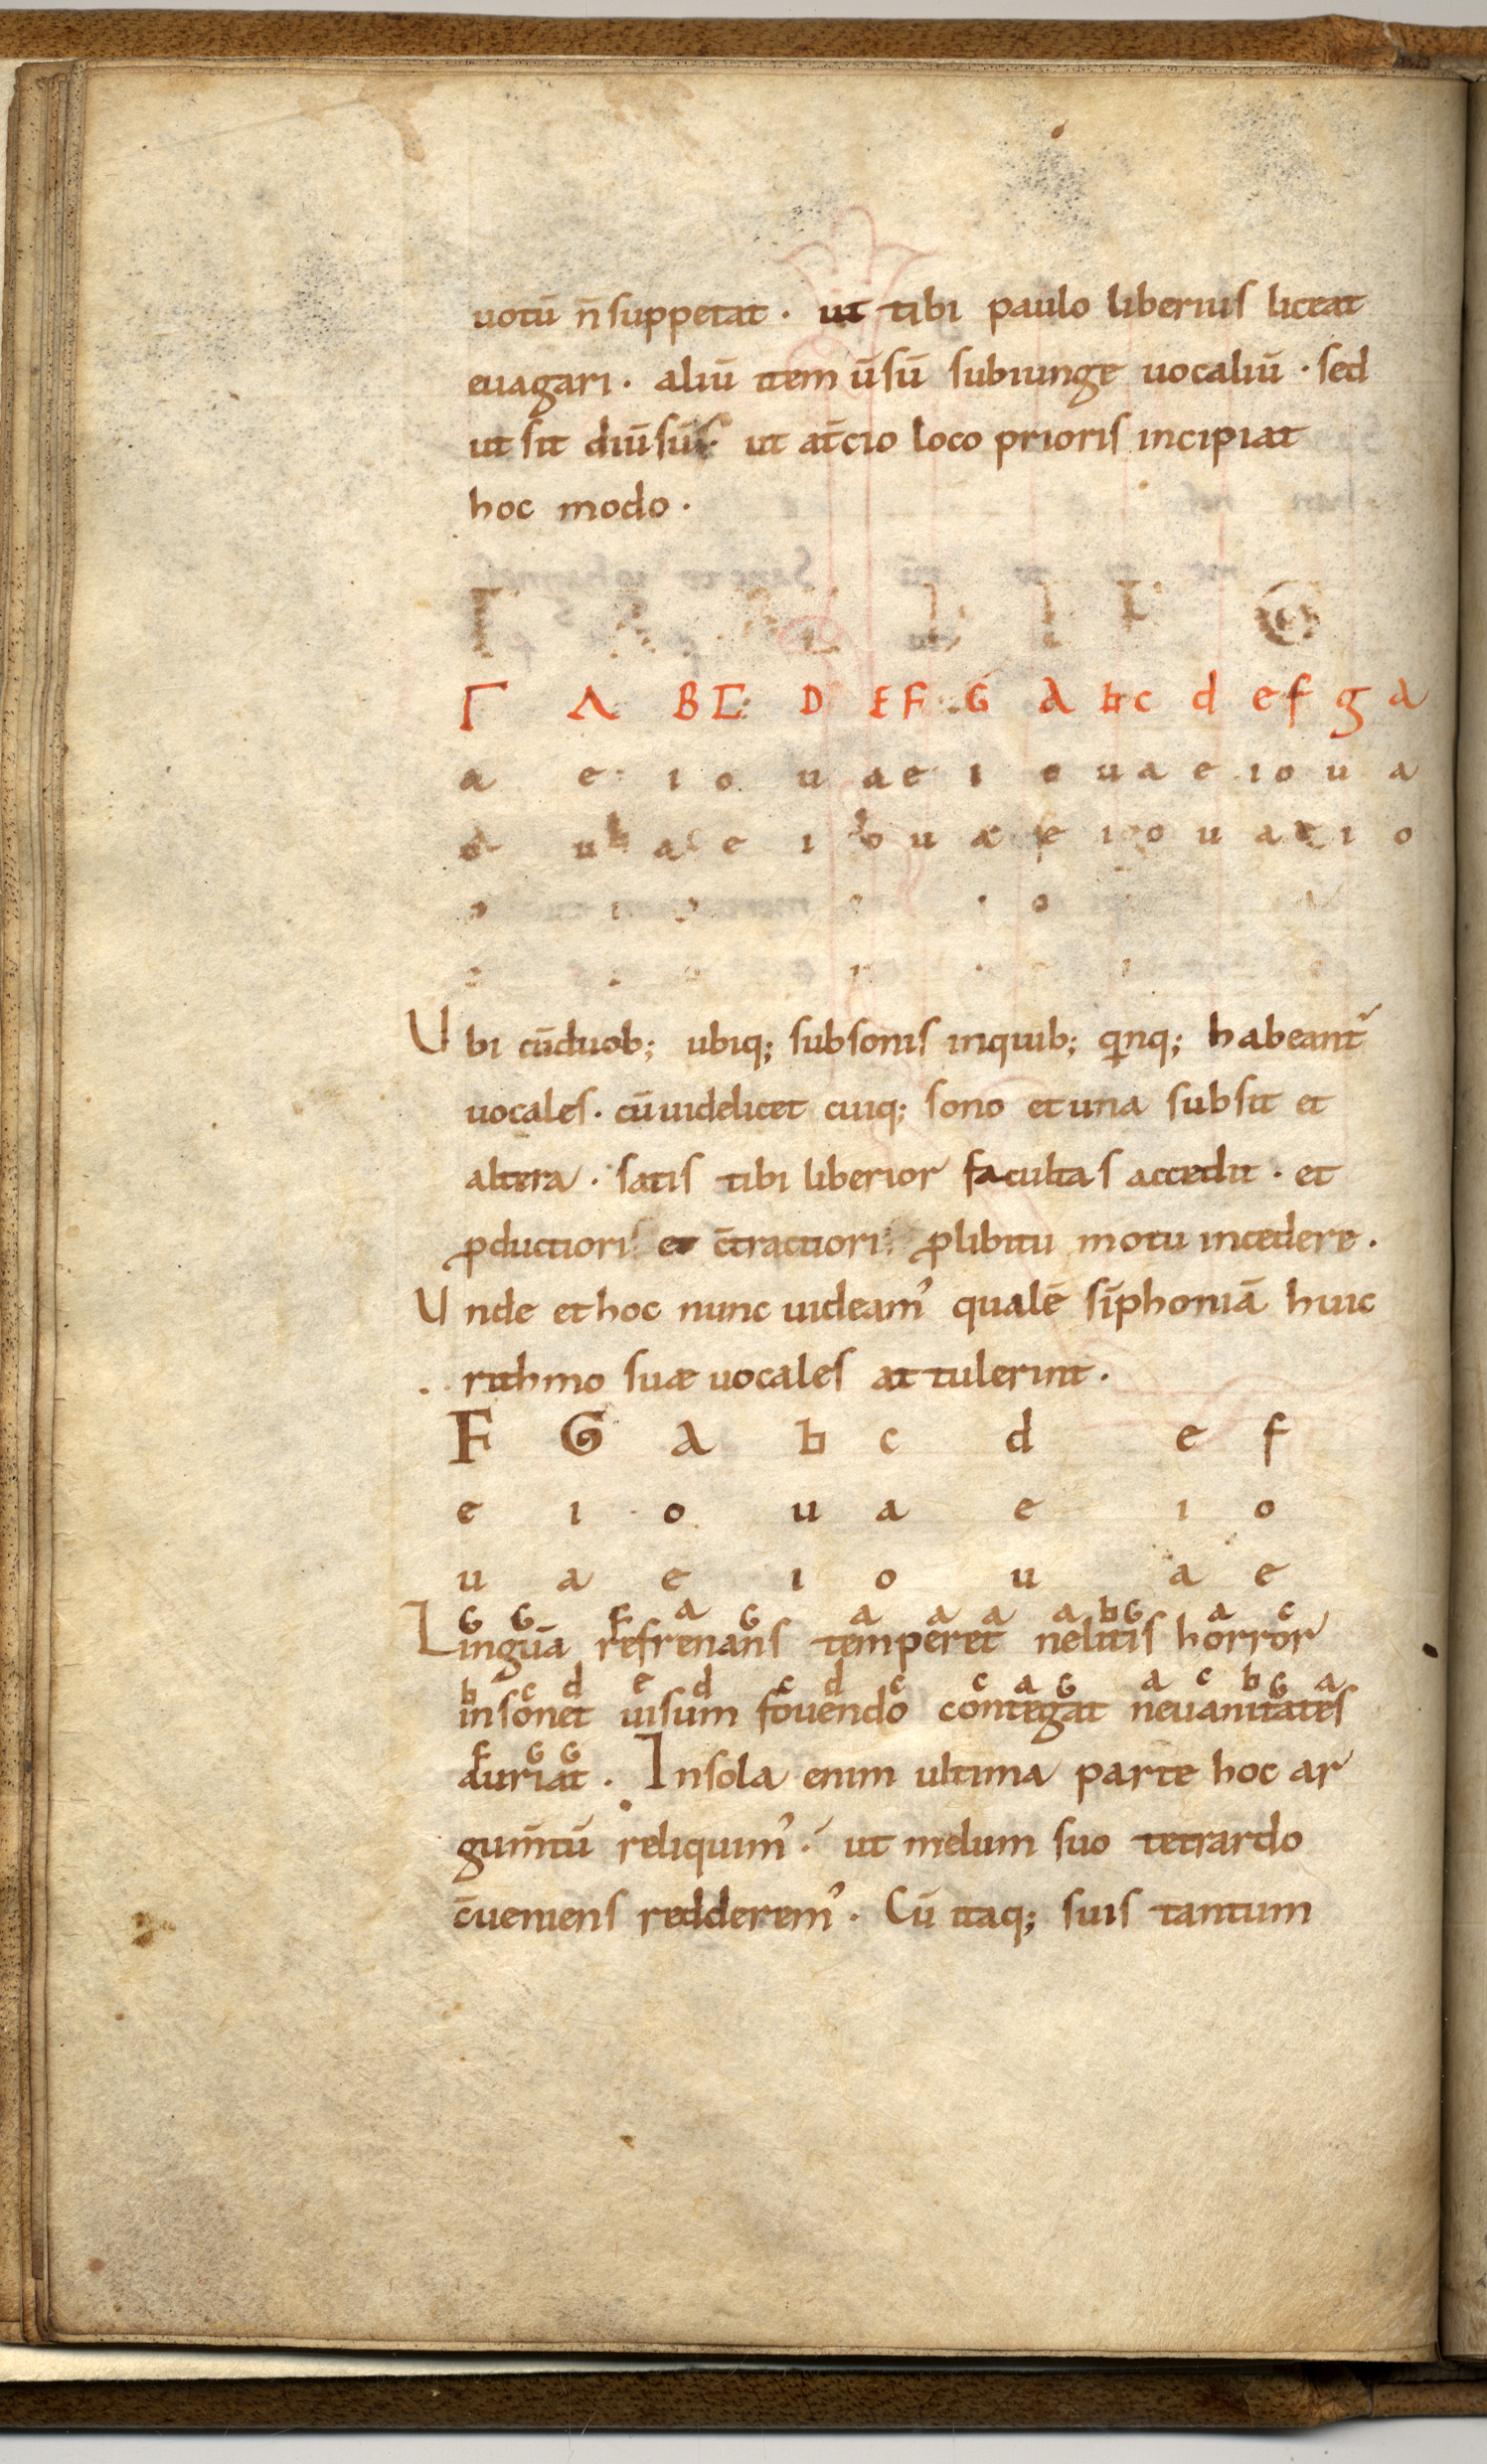 uotū n̄ suppetat · ut tibi paulo liberius liceat
euagari · aliū item ūsū subiunge uocaliū · sed
ut sit diūsus ut at̄cio loco prioris incipiat
hoc modo ·
Γ A B C D E F G a b c d e f g a
a e i o u a e i o u a e i o u a
o u a e i o u a e i o u a e i o
Ubi cū duob; ubiq; subsonis inquib; qinq; habeant̄
uocales · cū uidelicet cuiq; sono et una subsit et
altera · satis tibi liberior facultas accedit · et
ꝓductiori et c̄tractiori ꝓ libitu motu incedere ·
Unde et hoc nunc uideam' qualē sīphoniā huic
rithmo suæ uocales attulerint ·
F G a b c d e f
e i o u a e i o
u a e i o u a e
G G F a G a a a a b G a c
Linguā refrenans temperet nelitis horror
b c d e d c d c c a G a c b G a
insonet uisum fouendo contegat neuanitates
F G G
auriat · Insola enim ultima parte hoc ar
gum̄tū reliquim' · ut melum suo tetrardo
c̄ueniens redderem' · Cū itaq; suis tantum